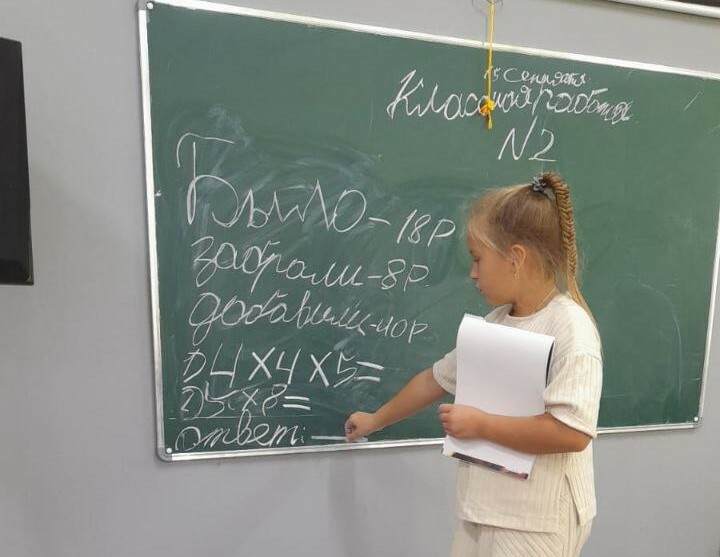 15 Сентября
Классная работа
N2
Было - 18р
забрали - 8р.
добавили - 10р.
1) 4 X 4 X 5 =
2) 5 X 8 =
ответ: —